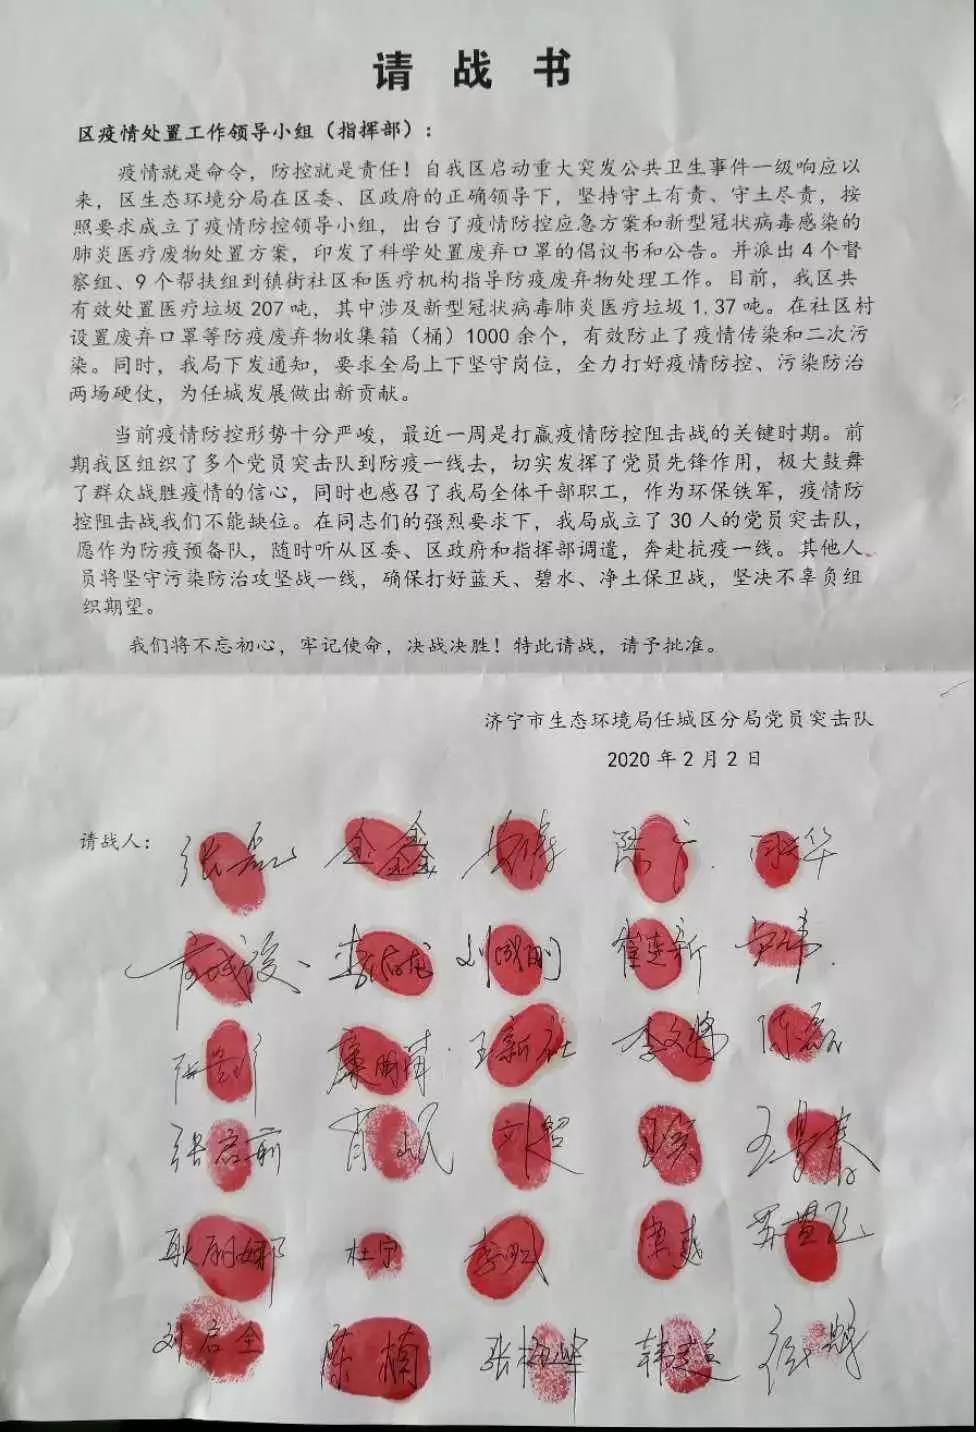 请战书
区疫情处置工作领导小组（指挥部）：
疫情就是命令，防控就是责任！自我区启动重大突发公共卫生事件一级响应以
来，区生态环境分局在区委、区政府的正确领导下，坚持守土有责、守土尽责，按
照要求成立了疫情防控领导小组，出台了疫情防控应急方案和新型冠状病毒感染的
肺炎医疗废物处置方案，印发了科学处置废弃口罩的倡议书和公告。并派出4个督
察组、9个帮扶组到镇街社区和医疗机构指导防疫废弃物处理工作。目前，我区共
有效处置医疗垃圾207吨，其中涉及新型冠状病毒肺炎医疗垃圾1.37吨。在社区村
设置废弃口罩等防疫废弃物收集箱（桶）1000余个，有效防止了疫情传染和二次污
染。同时，我局下发通知，要求全局上下坚守岗位，全力打好疫情防控、污染防治
两场硬仗，为任城发展做出新贡献。
当前疫情防控形势十分严峻，最近一周是打赢疫情防控阻击战的关键时期。前
期我区组织了多个党员突击队到防疫一线去，切实发挥了党员先锋作用，极大鼓舞
了群众战胜疫情的信心，同时也感召了我局全体干部职工，作为环保铁军，疫情防
控阻击战我们不能缺位。在同志们的强烈要求下，我局成立了30人的党员突击队，
愿作为防疫预备队，随时听从区委、区政府和指挥部调遣，奔赴抗疫一线。其他人
员将坚守污染防治攻坚战一线，确保打好蓝天、碧水、净土保卫战，坚决不辜负组
织期望。
我们将不忘初心，牢记使命，决战决胜！特此请战，请予批准。
济宁市生态环境局任城区分局党员突击队
2020年2月2日
请战人： 张磊 金鑫 陈宁
刘成刚 崔建新
王新社 陈磊
张启前 刘超
杜宁
刘启全 陈楠